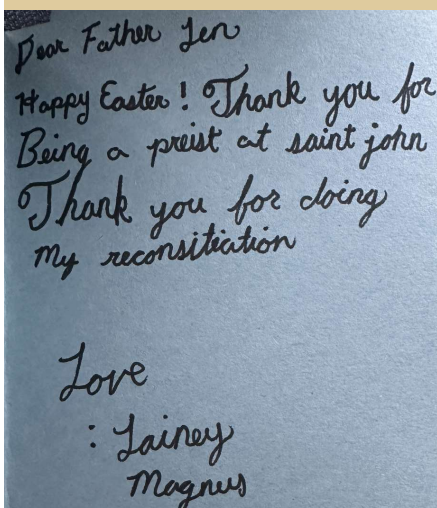 Dear Father Len
Happy Easter! Thank you for
Being a preist at saint john
Thank you for doing
My reconsitiation
Love
: Lainey
Magnus